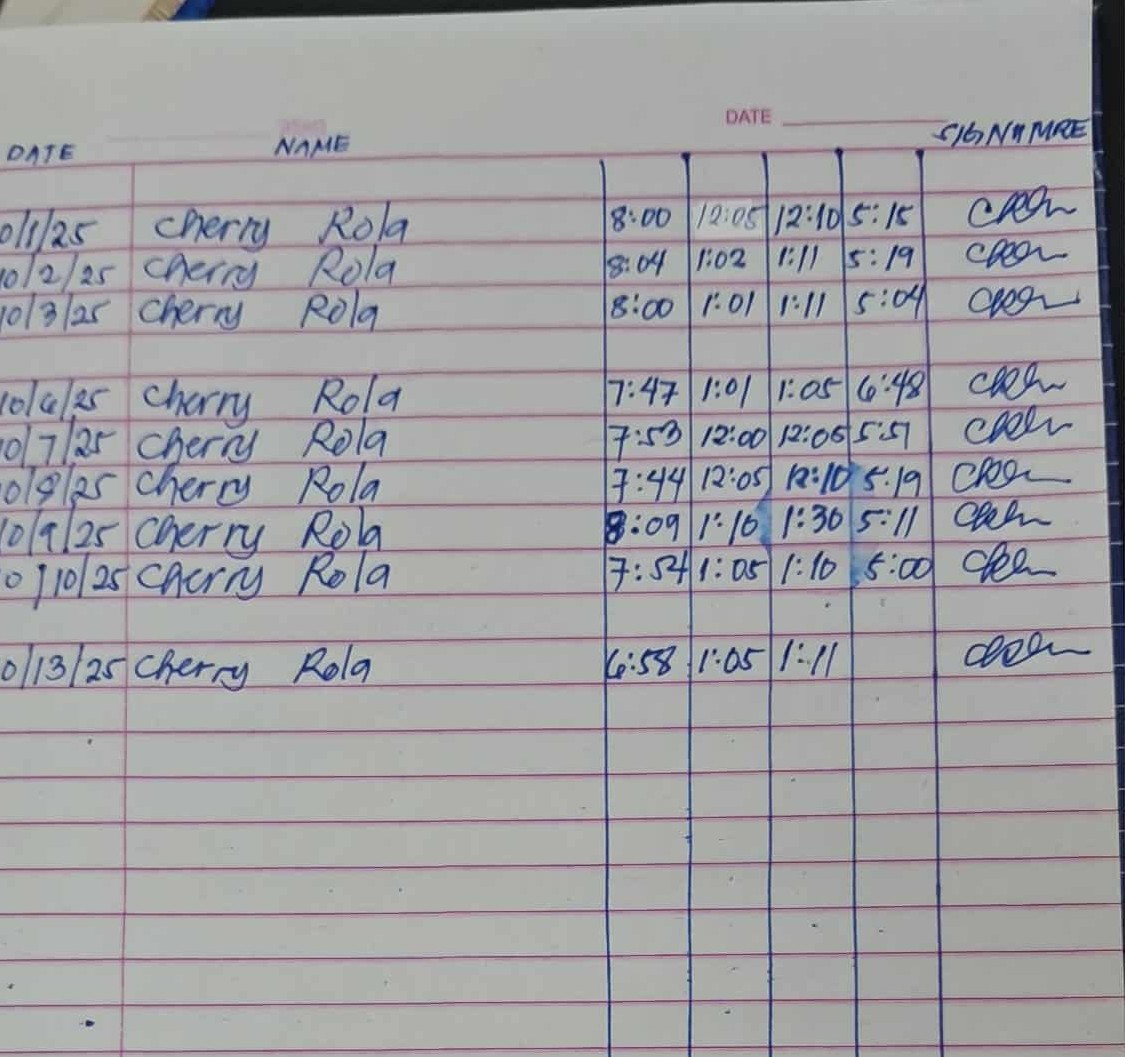 DATE
DATE NAME SIGNATURE
0/1/25 Cherry Rola 8:00 12:05 12:10 5:15
10/2/25 Cherry Rola 8:04 1:02 1:11 5:19
10/3/25 Cherry Rola 8:00 1:01 1:11 5:04
10/6/25 Cherry Rola 7:47 1:01 1:05 6:48
0/7/25 Cherry Rola 7:53 12:00 12:06 5:51
0/8/25 Cherry Rola 7:44 12:05 12:10 5:19
0/9/25 Cherry Rola 8:09 1:10 1:30 5:11
0/10/25 Cherry Rola 7:54 1:05 1:10 5:00
0/13/25 Cherry Rola 6:58 1:05 1:11